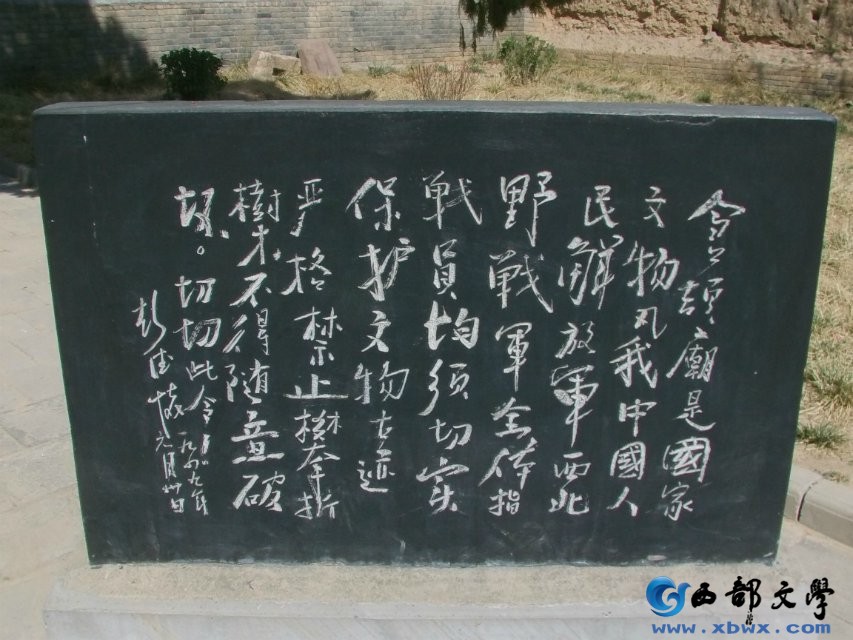 倉頡廟是國家
文物凡我中國人
民解放軍西北
野戰軍全体指
戰員均須切实
保护文物古迹
严格禁止攀折
樹木不得随意破
坏。切切此令！一九四九年
彭德懷元月廿日
西部文學
www.xbwx.com